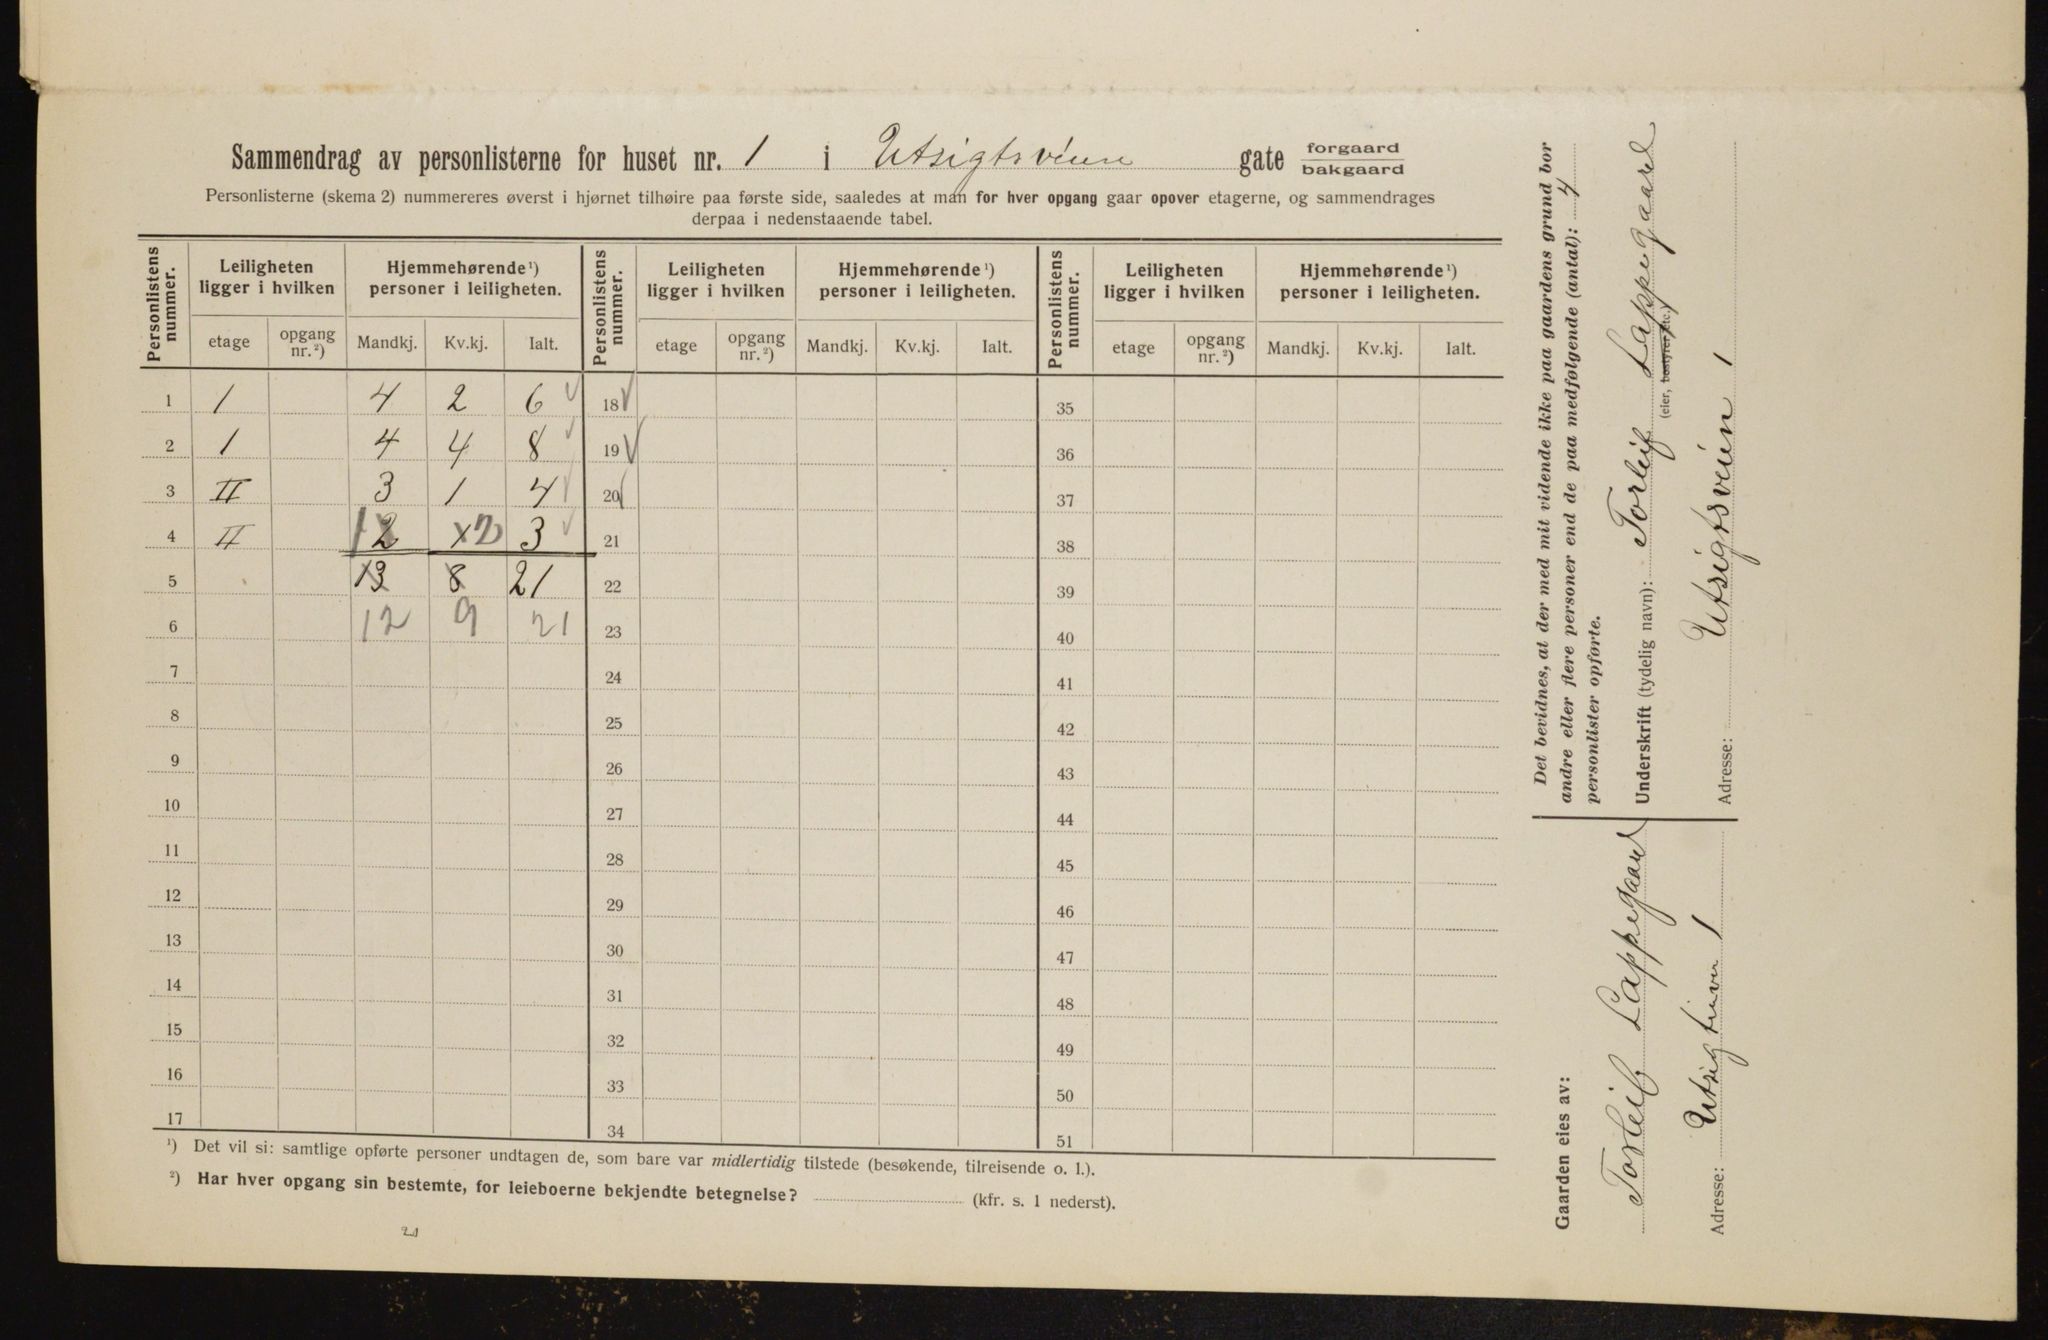 Sammendrag av personlisterne for huset nr. 1 i Utsigtsveien gate forgaard bakgaard
Personlisterne (skema 2) nummereres øverst i hjørnet tilhøire paa første side, saaledes at man for hver opgang gaar opover etagerne, og sammendrages
derpaa i nedenstaaende tabel.
Personlistens nummer. Leiligheten ligger i hvilken Hjemmehørende¹) personer i leiligheten. Personlistens nummer. Leiligheten ligger i hvilken Hjemmehørende¹) personer i leiligheten. Personlistens nummer. Leiligheten ligger i hvilken Hjemmehørende¹) personer i leiligheten.
etage opgang nr.²) Mandkj. Kv.kj. Ialt. etage opgang nr.²) Mandkj. Kv.kj. Ialt. etage opgang nr.²) Mandkj. Kv.kj. Ialt.
1 1 4 2 6 √ 18 √ 35
2 1 4 4 8 √ 19 √ 36
3 II 3 1 4 √ 20 37
4 II 1 2 x 2 3 √ 21 38
5 13 8 21 22 39
6 12 9 21 23 40
7 24 41
8 25 42
9 26 43
10 27 44
11 28 45
12 29 46
13 30 47
14 31 48
15 32 49
16 33 50
17 34 51
¹) Det vil si: samtlige opførte personer undtagen de, som bare var midlertidig tilstede (besøkende, tilreisende o. l.).
²) Har hver opgang sin bestemte, for leieboerne bekjendte betegnelse? (kfr. s. 1 nederst).
21
Det bevidnes, at der med mit vidende ikke paa gaardens grund bor
andre eller flere personer end de paa medfølgende (antal): 4
personlister opførte.
Underskrift (tydelig navn): Torleif Lappegaard
(eier, bestyrer etc.)
Adresse: Utsigtsveien 1
Gaarden eies av:
Torleif Lappegaard
Adresse: Utsigtsveien 1